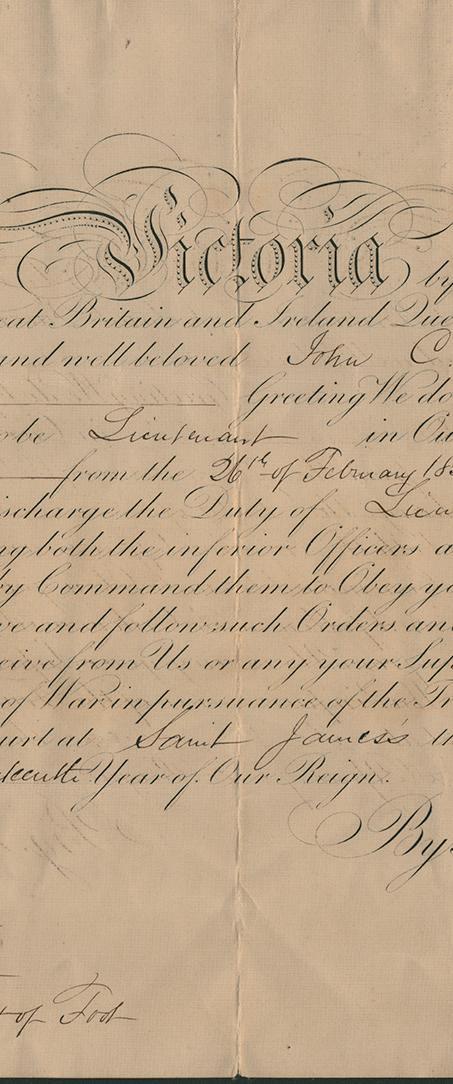 Victoria by
eat Britain and Ireland Que
and well beloved John C.
Greeting We do
be Lieutenant in Ou
from the 26th of February 18
scharge the Duty of Lieu
ng both the inferior Officers a
by Command them to Obey yo
ve and follow such Orders an
ceive from Us or any your Sup
of War in pursuance of the Tr
urt at Saint James's th
Year of Our Reign.
By
of Foot